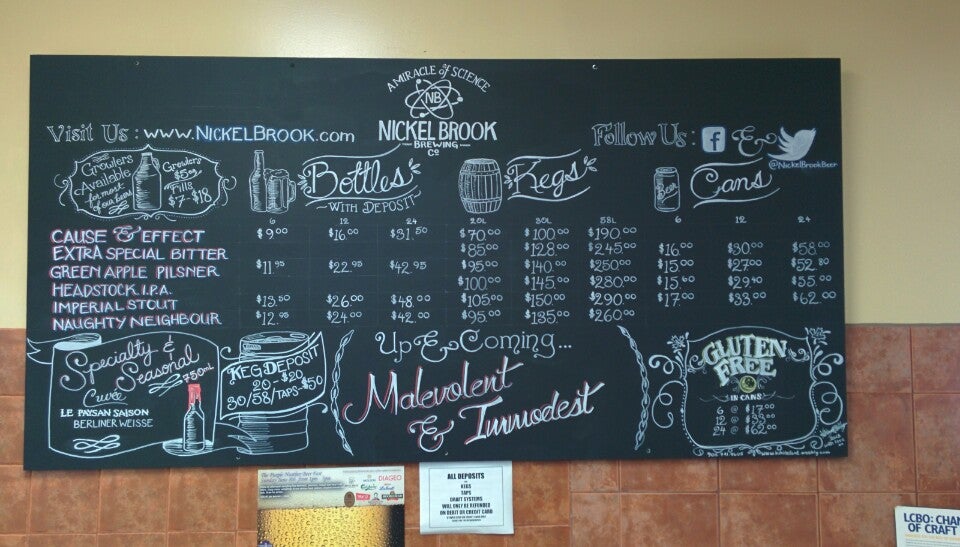 A MIRACLE of SCIENCE
NB
NICKEL BROOK
BREWING
CO
Visit Us: www.NICKELBROOK.com
Follow Us: f &
@NickelBrookBeer
Growlers
Available
for most
of our beers
Growlers
$5
Fills
$7-$18
Bottles
WITH DEPOSIT
Kegs
Beer
Cans
6 12 24 20L 30L 58L 6 12 24
CAUSE & EFFECT $9.00 $16.00 $31.50 $70.00 $100.00 $190.00
EXTRA SPECIAL BITTER $85.00 $128.00 $245.00 $16.00 $30.00 $58.00
GREEN APPLE PILSNER $11.95 $22.95 $42.95 $95.00 $140.00 $250.00 $15.00 $27.00 $52.80
HEADSTOCK I.P.A. $100.00 $145.00 $280.00 $15.60 $29.40 $55.00
IMPERIAL STOUT $13.50 $26.00 $48.00 $105.00 $150.00 $290.00 $17.00 $33.00 $62.00
NAUGHTY NEIGHBOUR $12.95 $24.00 $42.00 $95.00 $135.00 $260.00
Specialty &
Seasonal
750ml
Cuvée
LE PAYSAN SAISON
BERLINER WEISSE
KEG DEPOSIT
20 - $20
30/58/TAPS-$50
Up & Coming...
Malevolent
& Immodest
GLUTEN
FREE
IN CANS
6 @ $17.00
12 @ $33.00
24 @ $62.00
DIAGEO
ALL DEPOSITS
KEGS
TAPS
DRAFT SYSTEMS
WILL ONLY BE REFUNDED
ON DEBIT OR CREDIT CARD
LCBO: CHAN
OF CRAFT